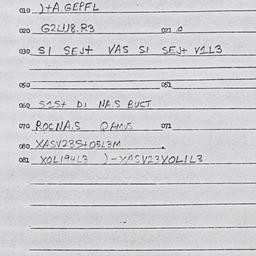 010 )+A.GEPFL
020 G2LU8.R3 021 .0
030 SI SEJ+ VAS SI SEJ+ V1L3
050 051
060 S2S+ DI NA.S BUCT
070 ROCNA.S QAMVS 072
080 XASV23S+05L3M
081 XOL194L3 )-XASV23XOL1L3